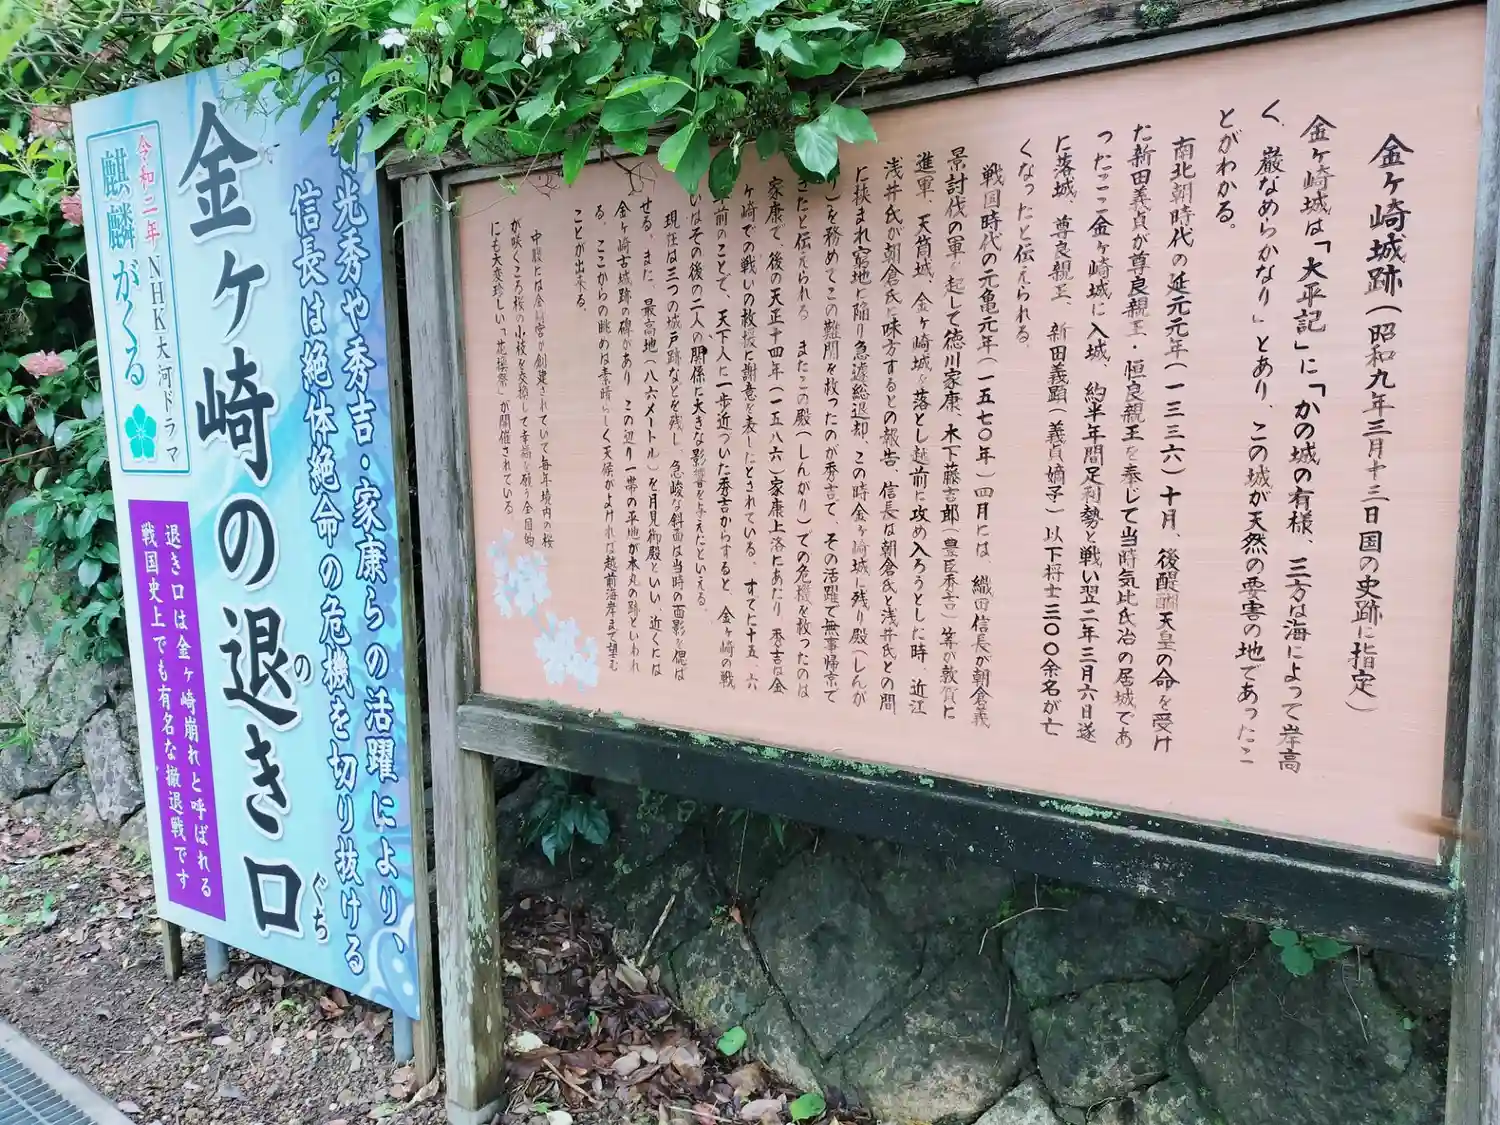 金ヶ崎城跡(昭和九年三月十三日国の史跡に指定)
金ヶ崎城は「太平記」に「かの城の有様、三方は海によって岸高
く、巌なめらかなり」とあり、この城が天然の要害の地であったこ
とがわかる。
南北朝時代の延元元年(一三三六)十月、後醍醐天皇の命を受け
た新田義貞が尊良親王・恒良親王を奉じて当時気比氏治の居城であ
ったここ金ヶ崎城に入城、約半年間足利勢と戦い翌二年三月六日遂
に落城、尊良親王、新田義顕(義貞嫡子)以下将士三〇〇余名が亡
くなったと伝えられる。
戦国時代の元亀元年(一五七〇年)四月には、織田信長が朝倉義
景討伐の軍を起して徳川家康、木下藤吉郎(豊臣秀吉)等が敦賀に
進軍、天筒城、金ヶ崎城を落とし越前に攻め入ろうとした時、近江
浅井氏が朝倉氏に味方するとの報告、信長は朝倉氏と浅井氏との間
に挟まれ窮地に陥り急遽総退却、この時金ヶ崎城に残り殿(しんが
り)を務めてこの難関を救ったのが秀吉で、その活躍で無事帰京で
きたと伝えられる。またこの殿(しんがり)での危機を救ったのは
家康で、後の天正十四年(一五八六)家康上洛にあたり秀吉は金
ヶ崎での戦いの救援に謝意を表したとされている。すでに十五、六
年前のことで、天下人に一歩近づいた秀吉からすると、金ヶ崎の戦
いはその後の二人の関係に大きな影響を与えたといえる。
現在は三つの城戸跡などを残し、急峻な斜面は当時の面影を偲ば
せる。また、最高地(八六メートル)を月見御殿といい、近くには
金ヶ崎古城跡の碑があり、この辺り一帯の平地が本丸の跡といわれ
る。ここからの眺めは素晴らしく天候がよければ越前海岸まで望む
ことが出来る。
中腹には金崎宮が創建されていて毎年境内の桜
が咲くころ桜の小枝を交換して幸福を願う全国的
にも大変珍しい「花換祭」が開催されている。
光秀や秀吉・家康らの活躍により、
信長は絶体絶命の危機を切り抜ける
金ヶ崎の退き口
の
ぐち
令和二年NHK大河ドラマ
麒麟がくる
退き口は金ヶ崎崩れと呼ばれる
戦国史上でも有名な撤退戦です